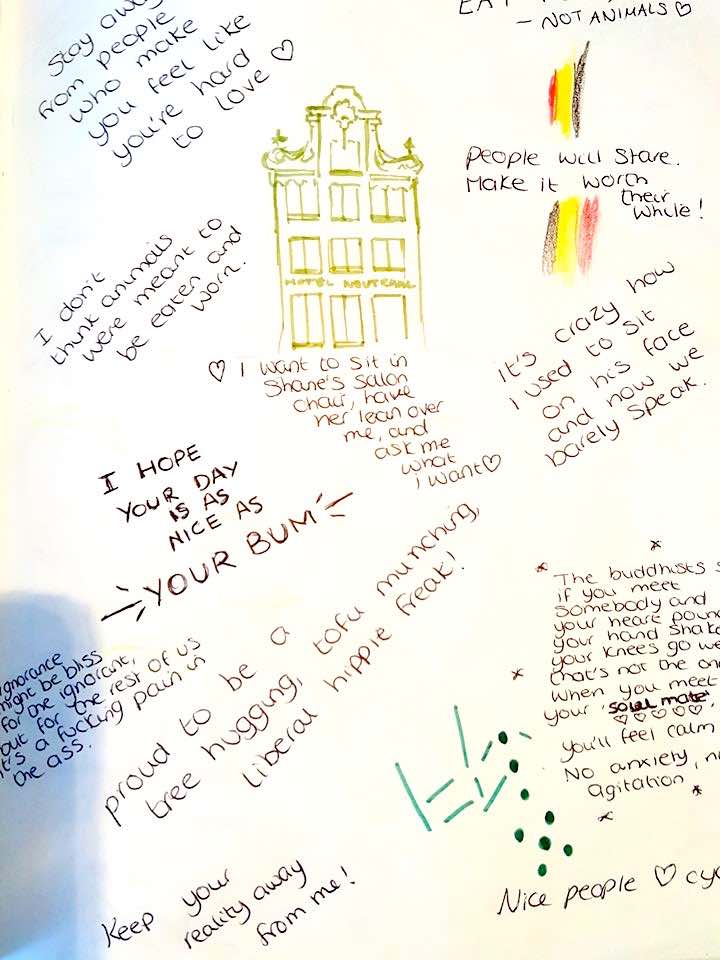 Stay away
from people
who make
you feel like
you're hard
to love ♡
- NOT ANIMALS ♡
People will stare.
Make it worth
their
while!
I don't
think animals
were meant to
be eaten and
worn.
HOTEL NEUTRAAL
♡ I want to sit in
Shane's salon
chair, have
her lean over
me, and
ask me
what
i want ♡
It's crazy how
I used to sit
on his face
and now we
barely speak.
I HOPE
YOUR DAY
IS AS
NICE AS
YOUR BUM
proud to be a
tree hugging, tofu munching,
liberal hippie freak!
ignorance
might be bliss
for the ignorant,
but for the rest of us
it's a fucking pain in
the ass.
The buddhists
if you meet
somebody and
your heart
your hand
your knees go
that's not the
when you meet
your 'soul mate'
♡♡♡♡♡
you'll feel calm
No anxiety,
agitation.
Keep your
reality away
from me!
Nice people ♡